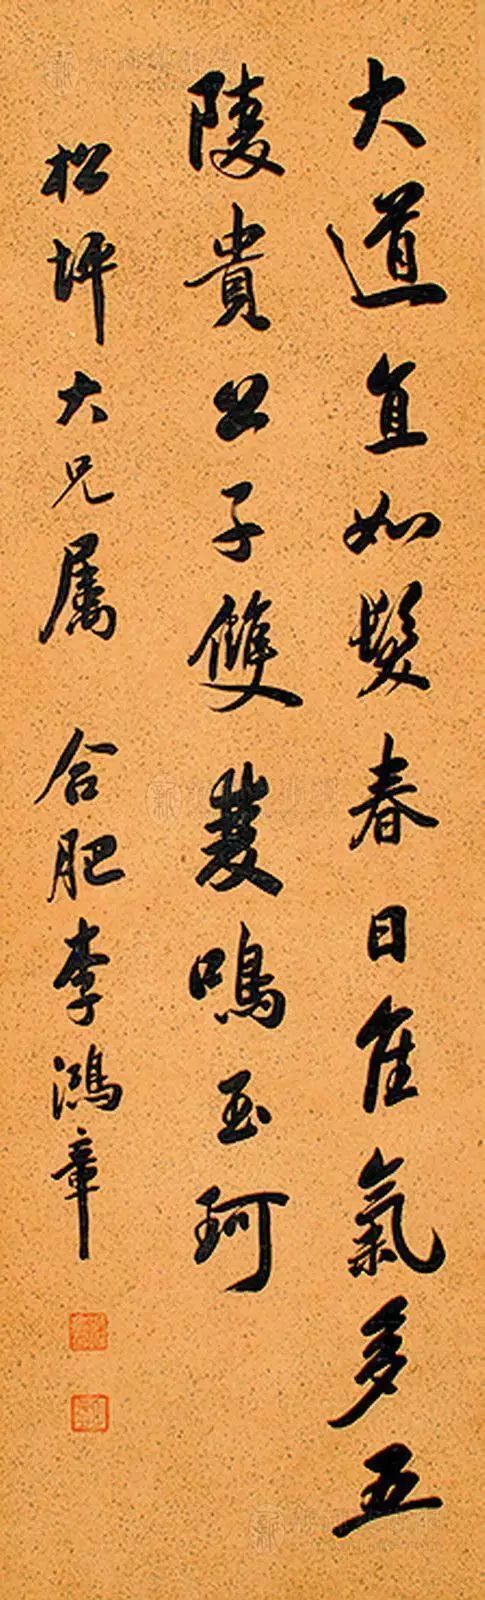 大道直如髮春日佳氣多五
陵貴公子雙雙鳴玉珂
松坪大兄屬 合肥李鴻章